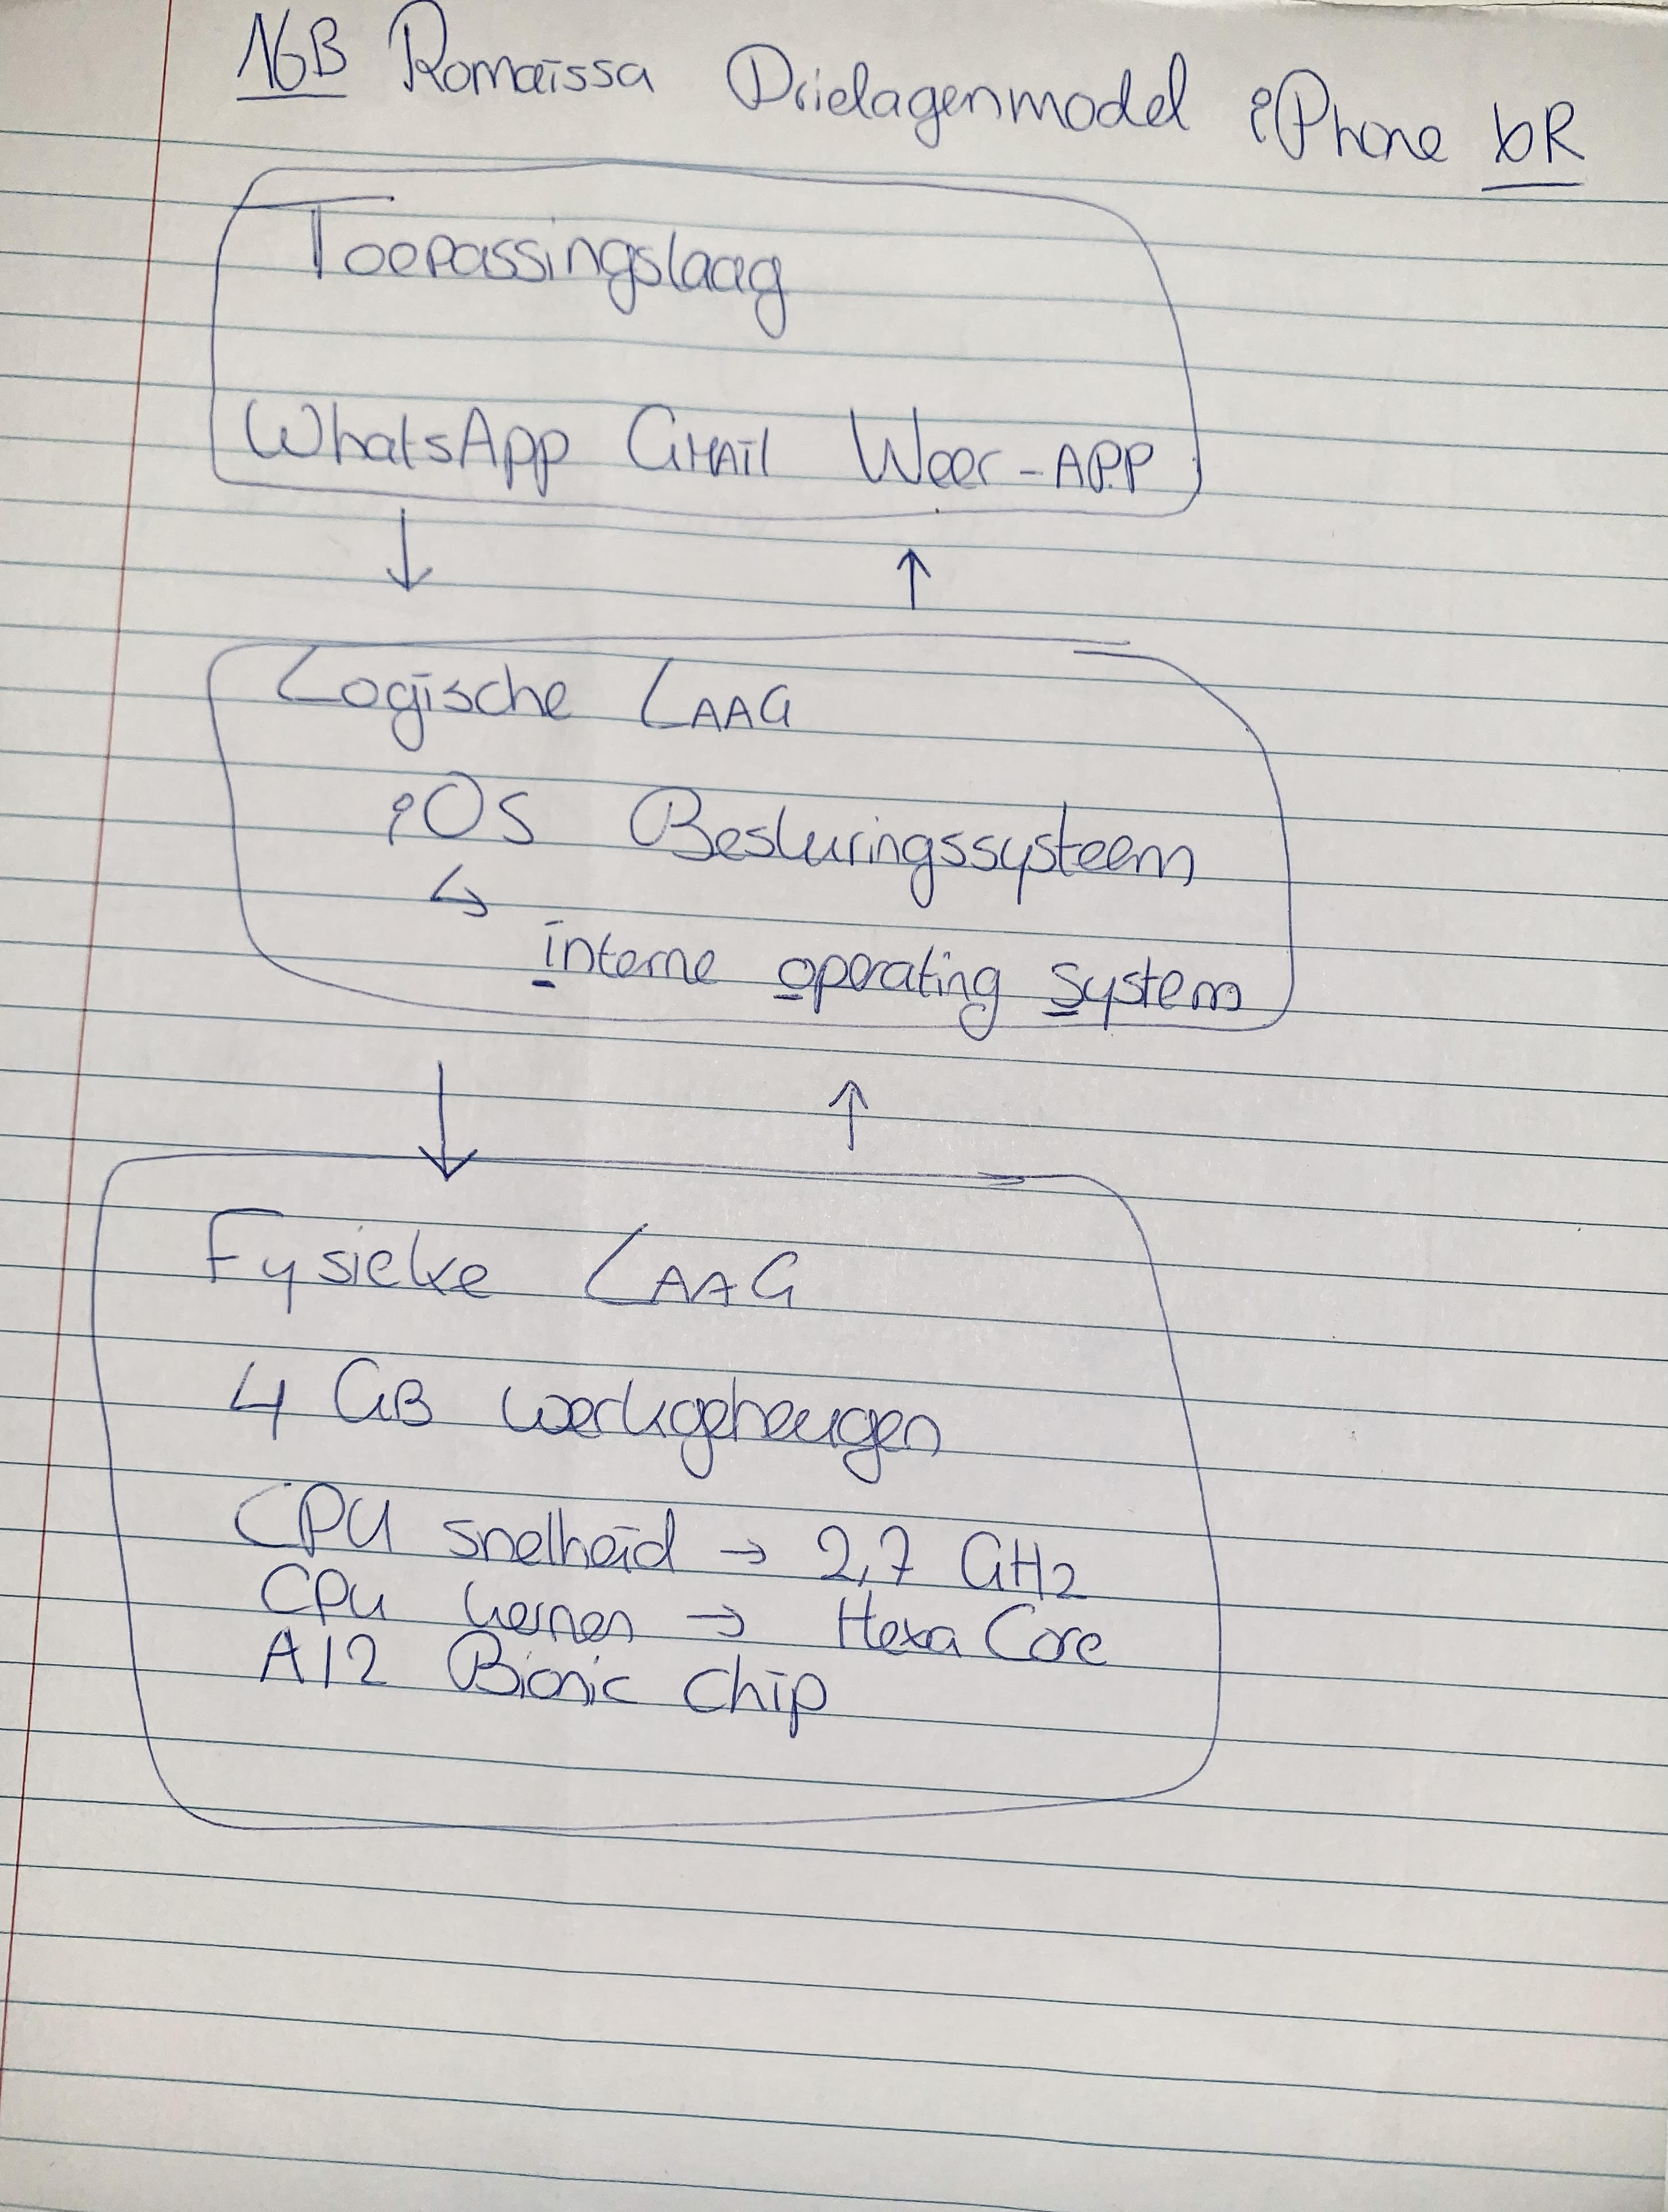 1GB Romaissa Drielagenmodel iPhone XR
Toepassingslaag
WhatsApp GMAIL Weer-APP
↓ ↑
Logische LAAG
iOS Besturingssysteem
↳
interne operating system
↓ ↑
Fysieke LAAG
4 GB werkgeheugen
CPU snelheid → 2,7 GHz
CPU kernen → Hexa Core
A12 Bionic chip